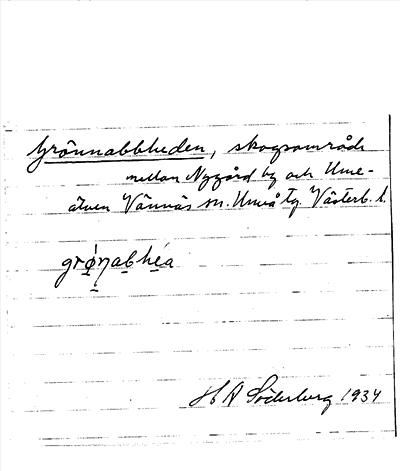 Grönnabbheden, skogsområde
mellan Nygård by och Ume-
älven Vännäs sn. Umeå tg. Västerb. l.
grö́ŋabhéa
H A Söderberg 1934